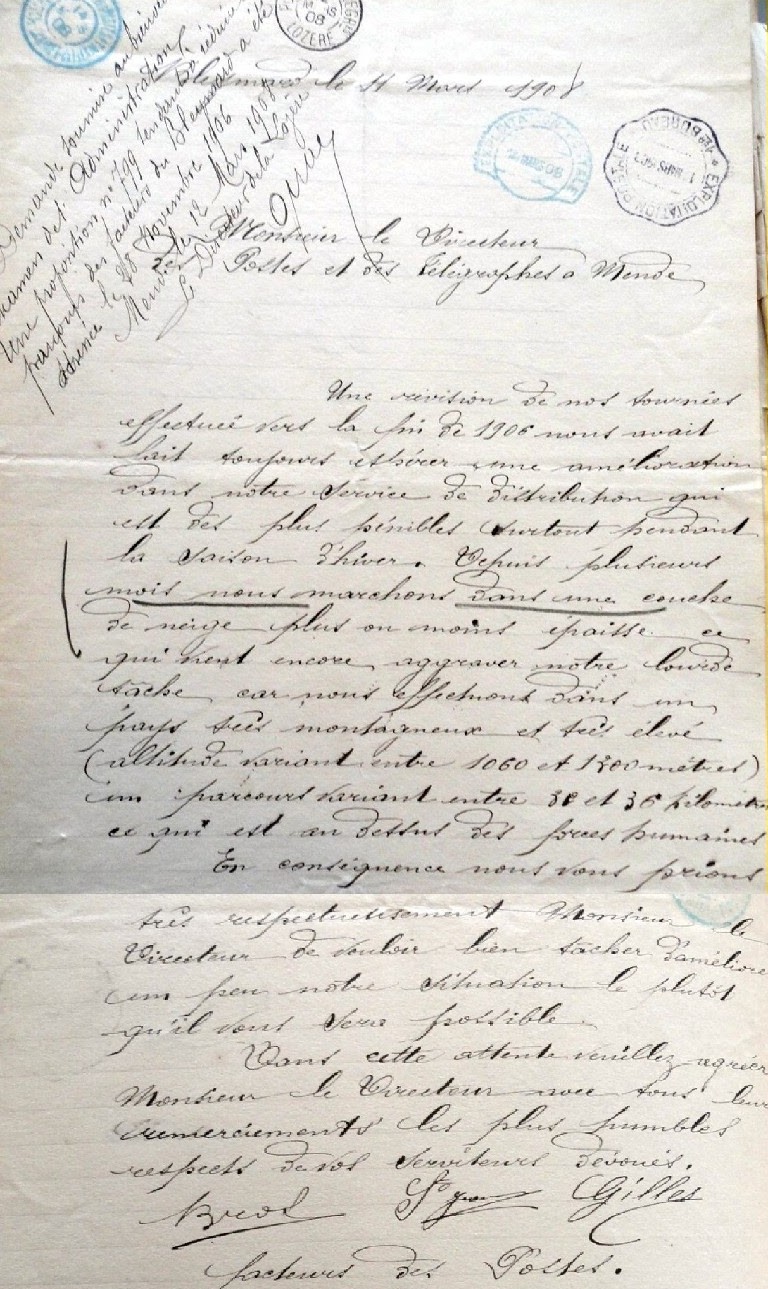 Demande soumise au bienveillant
examen de l'Administration.
Une proposition n° 799 tendant à réduire
parcours des facteurs du Bleymard a été
adressée le 28 Novembre 1906
Mende, le 12 Mars 1908
Le Directeur de la Lozère
LOZERE
08
Bleymard le 11 Mars 1908
EXPLOITATION POSTALE
EXPLOITATION POSTALE
BUREAU
Monsieur le Directeur
des Postes et des Télégraphes à Mende
Une révision de nos tournées
effectuée vers la fin de 1906 nous avait
fait toujours espérer une amélioration
dans notre service de distribution qui
est des plus pénibles surtout pendant
la saison d'hiver. Depuis plusieurs
mois nous marchons dans une couche
de neige plus ou moins épaisse ce
qui vient encore aggraver notre lourde
tâche car nous effectuons dans un
pays très montagneux et très élevé
(altitude variant entre 1060 et 1300 mètres)
un parcours variant entre et 36 kilomètres
ce qui est au dessus des forces humaines
En conséquence nous vous prions
très respectueusement Monsieur le
Directeur de vouloir bien tacher d'améliorer
un peu notre situation le plutôt
qu'il vous sera possible.
Dans cette attente veuillez agréer
Monsieur le Directeur avec tous leurs
remerciements les plus humbles
respects de vos serviteurs dévoués.
Gilles
facteurs des Postes.